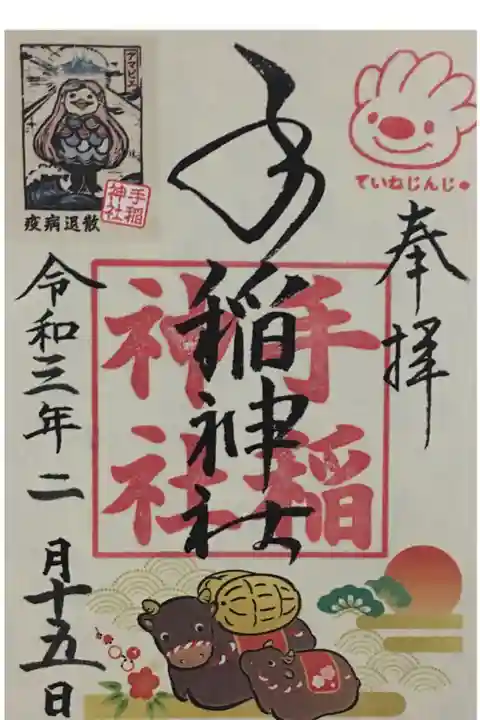 ていねじんじゃ
奉拝
手稲神社
手稲
神社
アマビエ
疫病退散
手稲
神社
令和三年二月十五日